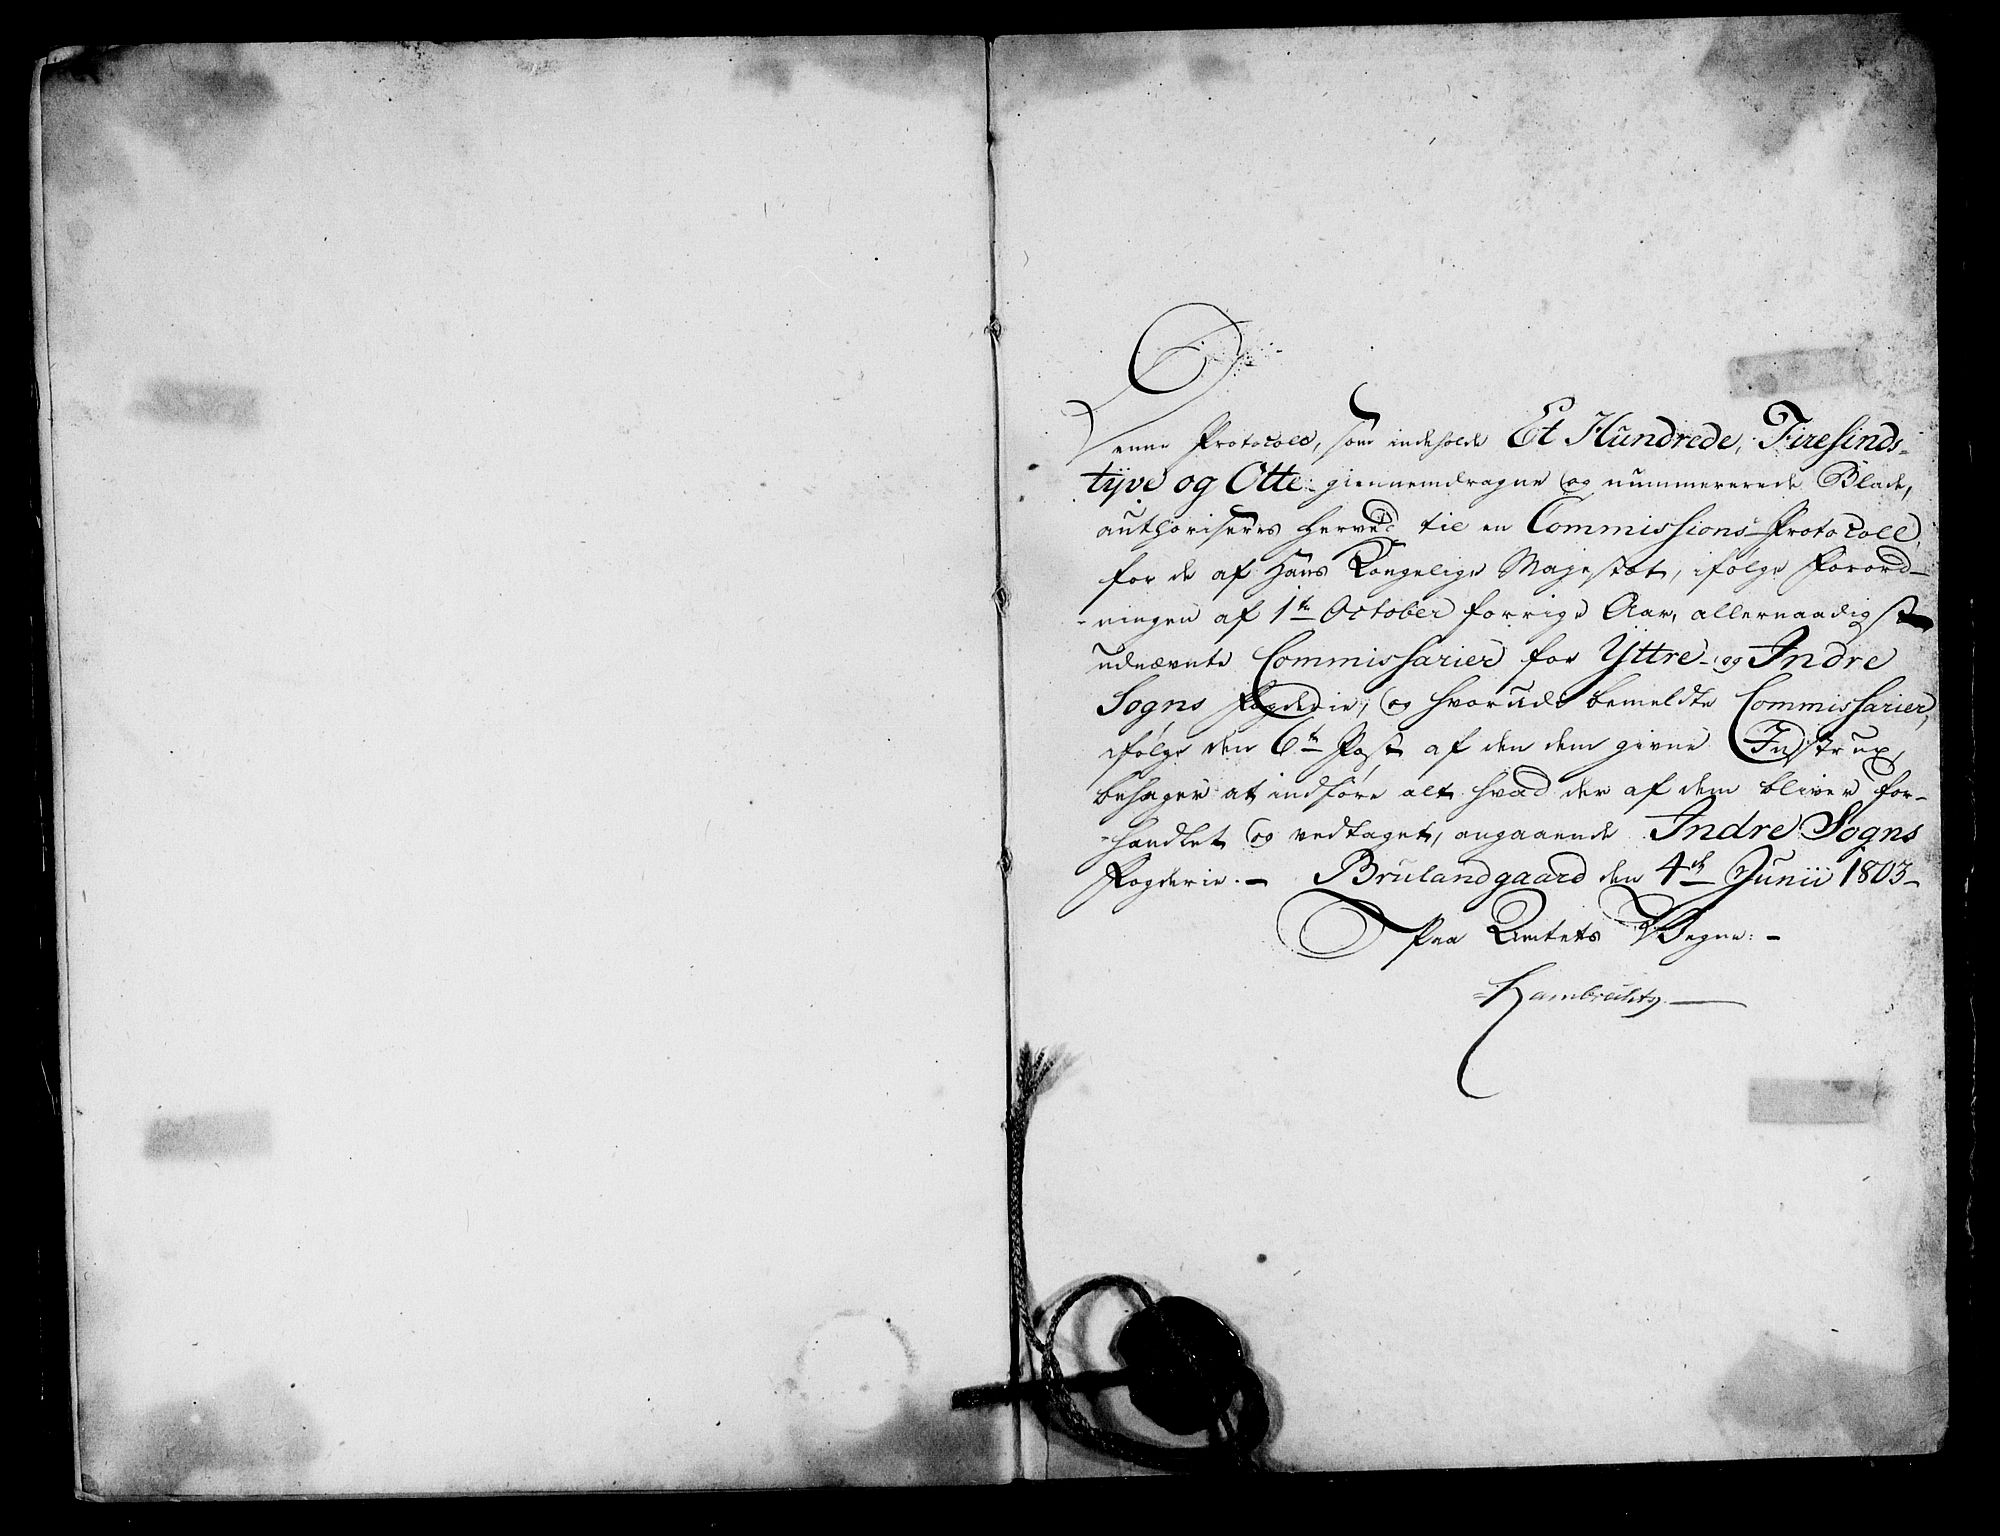 Denne Protocoll, som indeholde Et Hundrede, Firesinds-
tyve og Otte giennemdragne og nummererede Blade,
authoriseres herved til en Commissions-Protocoll,
for de af Hans Kongelige Majestæt, ifølge Forord-
-ningen af 1te October forrige Aar, allernaadigst
udnævnte Commissarier for Yttre- og Indre
Sogns Fogderie, og hvorudi bemeldte Commissarier,
ifølge den 6te Post af den dem givne Instrux,
behager at indføre alt hvad der af dem bliver for-
-handlet og vedtaget, angaaende Indre Sogns
Fogderie. - Brulandgaard den 4de Junii 1803-
Paa Amtets Vegne: -